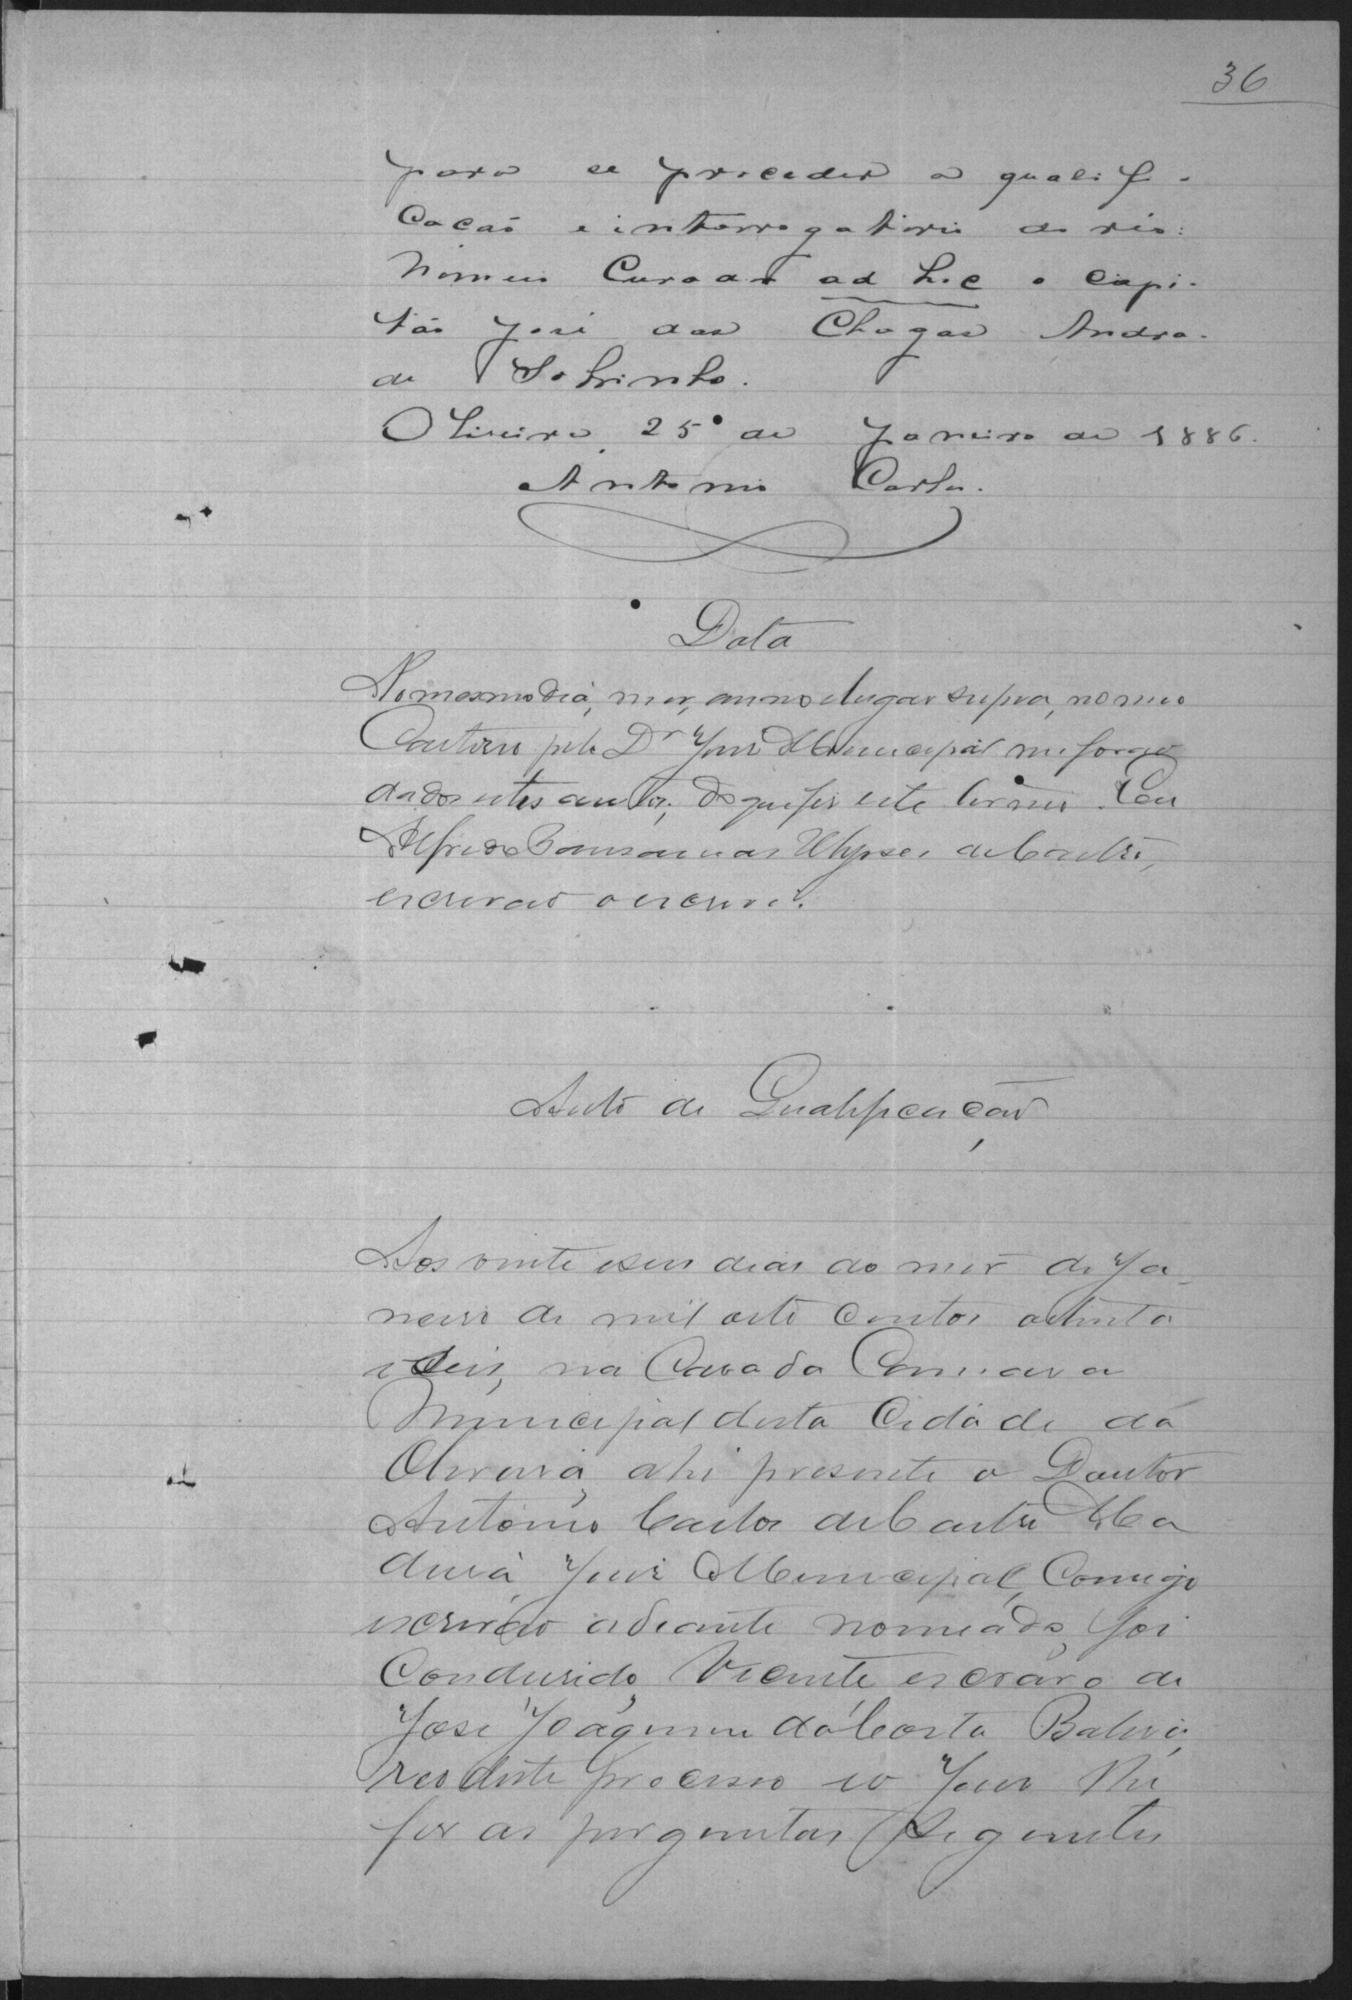 36
para se proceder a qualifi-
cação e interrogatorio do réo:
Nomeio Curador ad hoc o Capi-
tão José das Chagas Andra-
de Sobrinho.
Oliveira, 25 de Janeiro de 1886.
Antonio Carlos.
Data
No mesmo dia, mez, anno e lugar supra, no meo
Cartorio pelo Dr Juiz Municipal me forão
dados estes autos; do que fiz este termo. Eu
Alfredo Ulysses de Castro,
escrivão o escrevi.
Auto de Qualificação
Aos vinte e seis dias do mez de Ja
neiro de mil oito centos oitenta
e seis, na Casa da Camara
Municipal desta Cidade da
Oliveira, ahi presente o Doutor
Antonio Carlos de Castro Ma
dura Juiz Municipal, Comigo
escrivão adiante nomeado, foi
Condusido, Vicente escravo de
José Joaquim da Costa
reo deste processo e o Juiz lhe
fez as perguntas seguintes